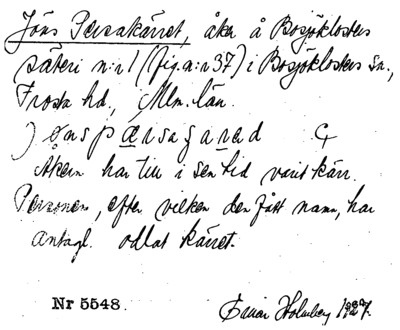 Jöns Persakärret, åker å Bosjöklosters
säteri n:r 1 (fig. a:r 37) i Bosjöklosters sn.,
Frosta hd., Mlm. län.
) ønspærsaɡarəd
Åkern har till i sen tid varit kärr.
Personen, efter vilken den fått namn, har
antagl. odlat kärret.
Nr 5548.
Einar Holmberg 1927.